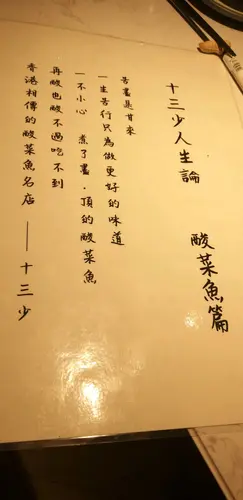 十三少人生論
酸菜魚篇
苦盡是甘來
一生苦行只為做更好的味道
一不小心 煮了盡·頂的酸菜魚
再酸也酸不過吃不到
香港相傳的酸菜魚名店 —— 十三少